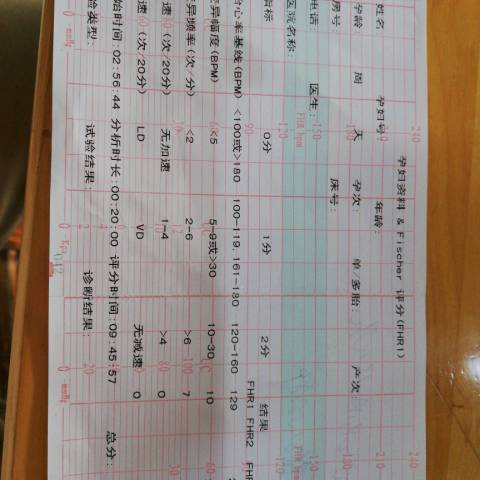 孕妇资料 & Fischer 评分(FHR1)
姓名 孕妇号: 年龄: 单/多胎: 产次:
孕龄 周 天 孕次:
房号: 床号:
电话: 医生:
医院名称:
指标 0分 1分 2分 结果
FHR1 FHR2
胎心率基线(BPM) <100或>180 100-119, 161-180 120-160 129
变异幅度(BPM) <5 5-9或>30 10-30 10
变异频率(次/分) <2 2-6 >6 7
速 (次/20分) 无加速 1-4 >4 0
速 (次/20分) LD VD 无减速 0
始时间:02:56:44 分析时长:00:20:00 评分时间:09:45:57 总分:
验类型: 试验结果: 诊断结果: